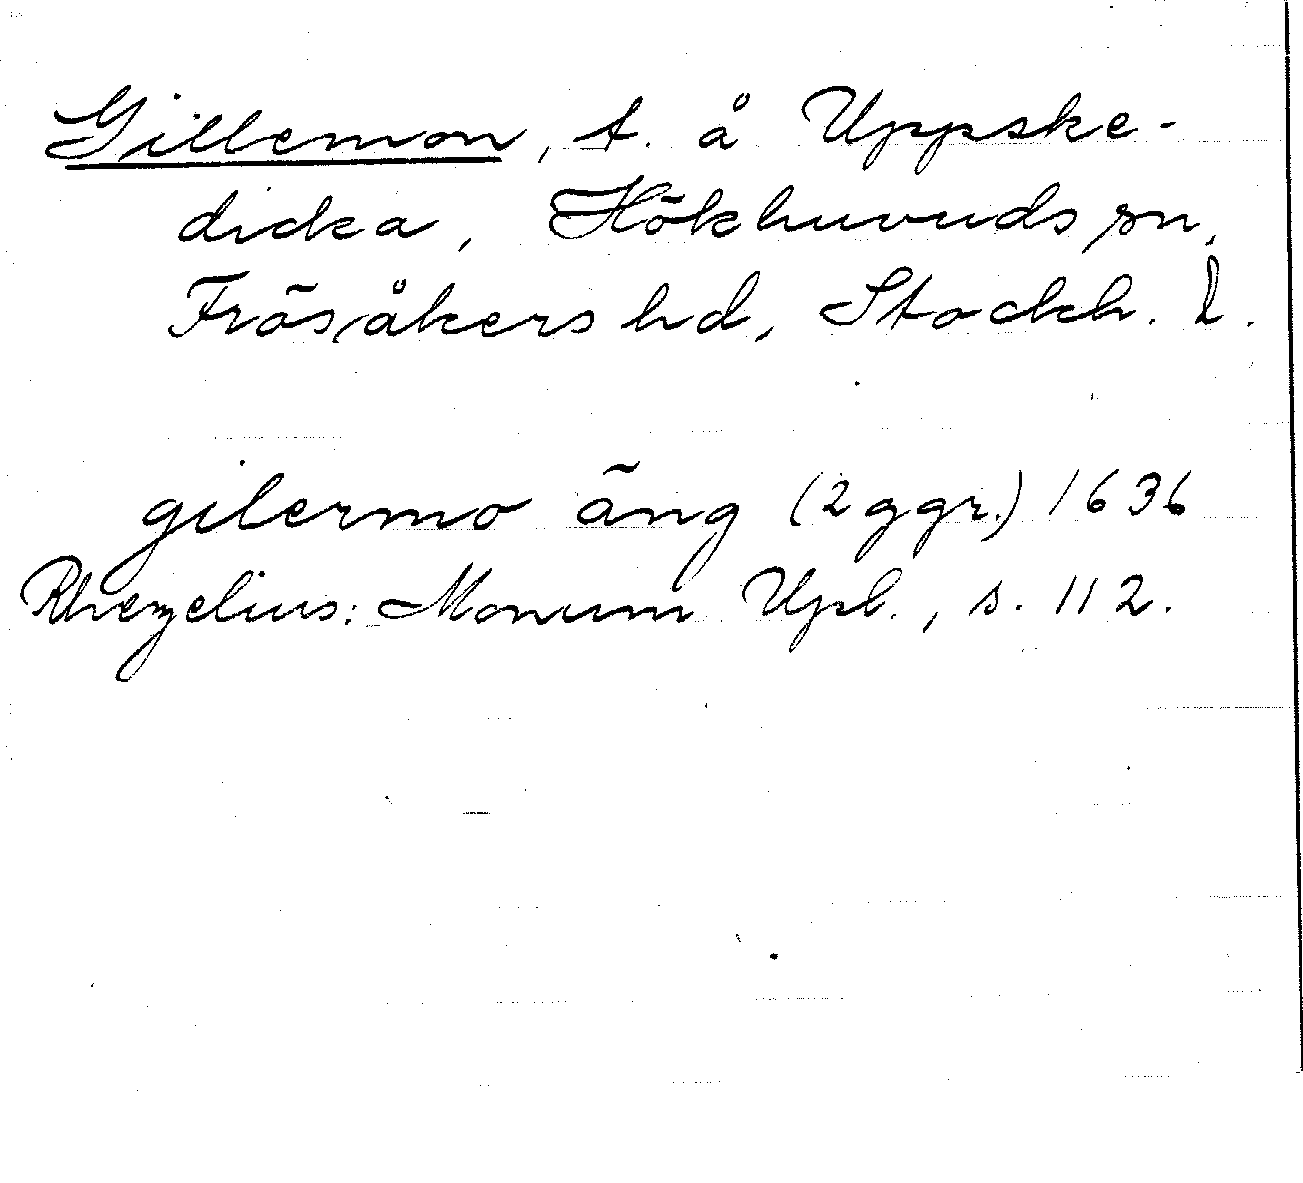 Gillemon, t. å Uppske-
dicka, Hökhuvuds sn,
Frösåkers hd, Stockh. l.
gilermo äng (2 ggr.) 1636
Rhezelius: Monum Upl., s. 112.